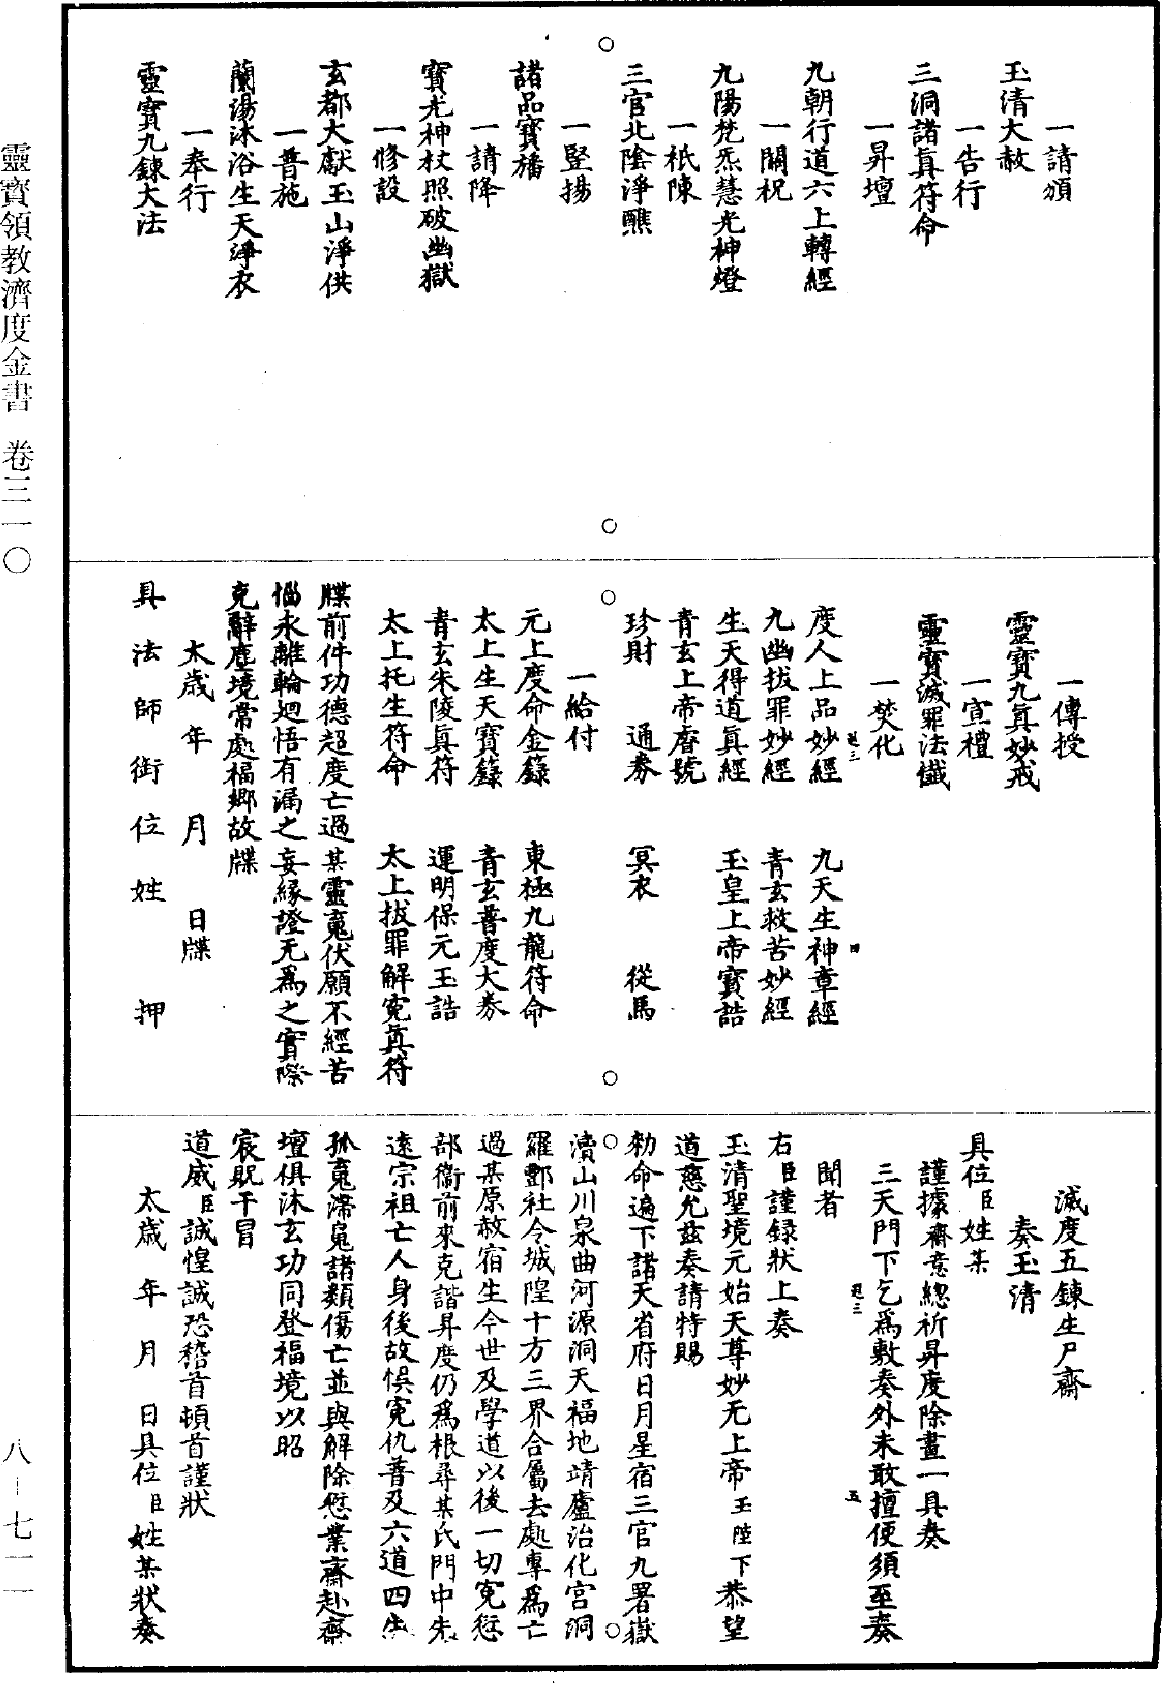 一請頒
玉清大赦
一告行
三洞諸眞符命
一昇壇
九朝行道六上轉經
一關祝
九陽梵炁慧光神燈
一祇陳
三官北陰淨醮
一竪揚
諸品寶旛
一請降
寶光神杖照破幽獄
一修設
玄都大獻玉山淨供
一普施
蘭湯沐浴生天淨衣
一奉行
靈寶九鍊大法
一傳授
靈寶九眞妙戒
一宣禮
靈寶滅罪法懴
一焚化
度人上品妙經 九天生神章經
九幽拔罪妙經 青玄救苦妙經
生天得道眞經 玉皇上帝寶誥
青玄上帝睿號
珍財 通券 冥衣 從馬
一給付
元上度命金籙 東極九龍符命
太上生天寶籙 青玄普度大券
青玄朱陵眞符 運明保元玉誥
太上托生符命 太上拔罪解寃眞符
牒前件功德超度亡過某靈䰟伏願不經苦
惱永離輪迴悟有漏之妄緣證无爲之實際
克辭塵境常處福鄉故牒
太歲 年 月 日牒
具法師銜位姓 押
滅度五鍊生尸齋
奏玉清
具位臣姓某
謹據齋意總祈昇度除畫一具奏
三天門下乞爲敷奏外未敢擅便須至奏
聞者
右臣謹録狀上奏
玉清聖境元始天尊妙无上帝玉陛下恭望
道慈允茲奏請特賜
勑命遍下諸天省府日月星宿三官九署嶽
瀆山川泉曲河源洞天福地靖廬治化宮洞
羅酆社令城隍十方三界合屬去處專爲亡
過某原赦宿生今世及學道以後一切寃愆
部衞前來克諧昇度仍爲根尋某氏門中先
遠宗祖亡人身後故悞寃仇普及六道四生
孤䰟滯鬼諸類傷亡並與解除愆業齋赴齋
壇俱沐玄功同登福境以昭
宸貺干冒
道威臣誠惶誠恐稽首頓首謹狀
太歲 年 月 日具位臣姓某狀奏
靈寶領教濟度金書 卷三一〇
八－七一一